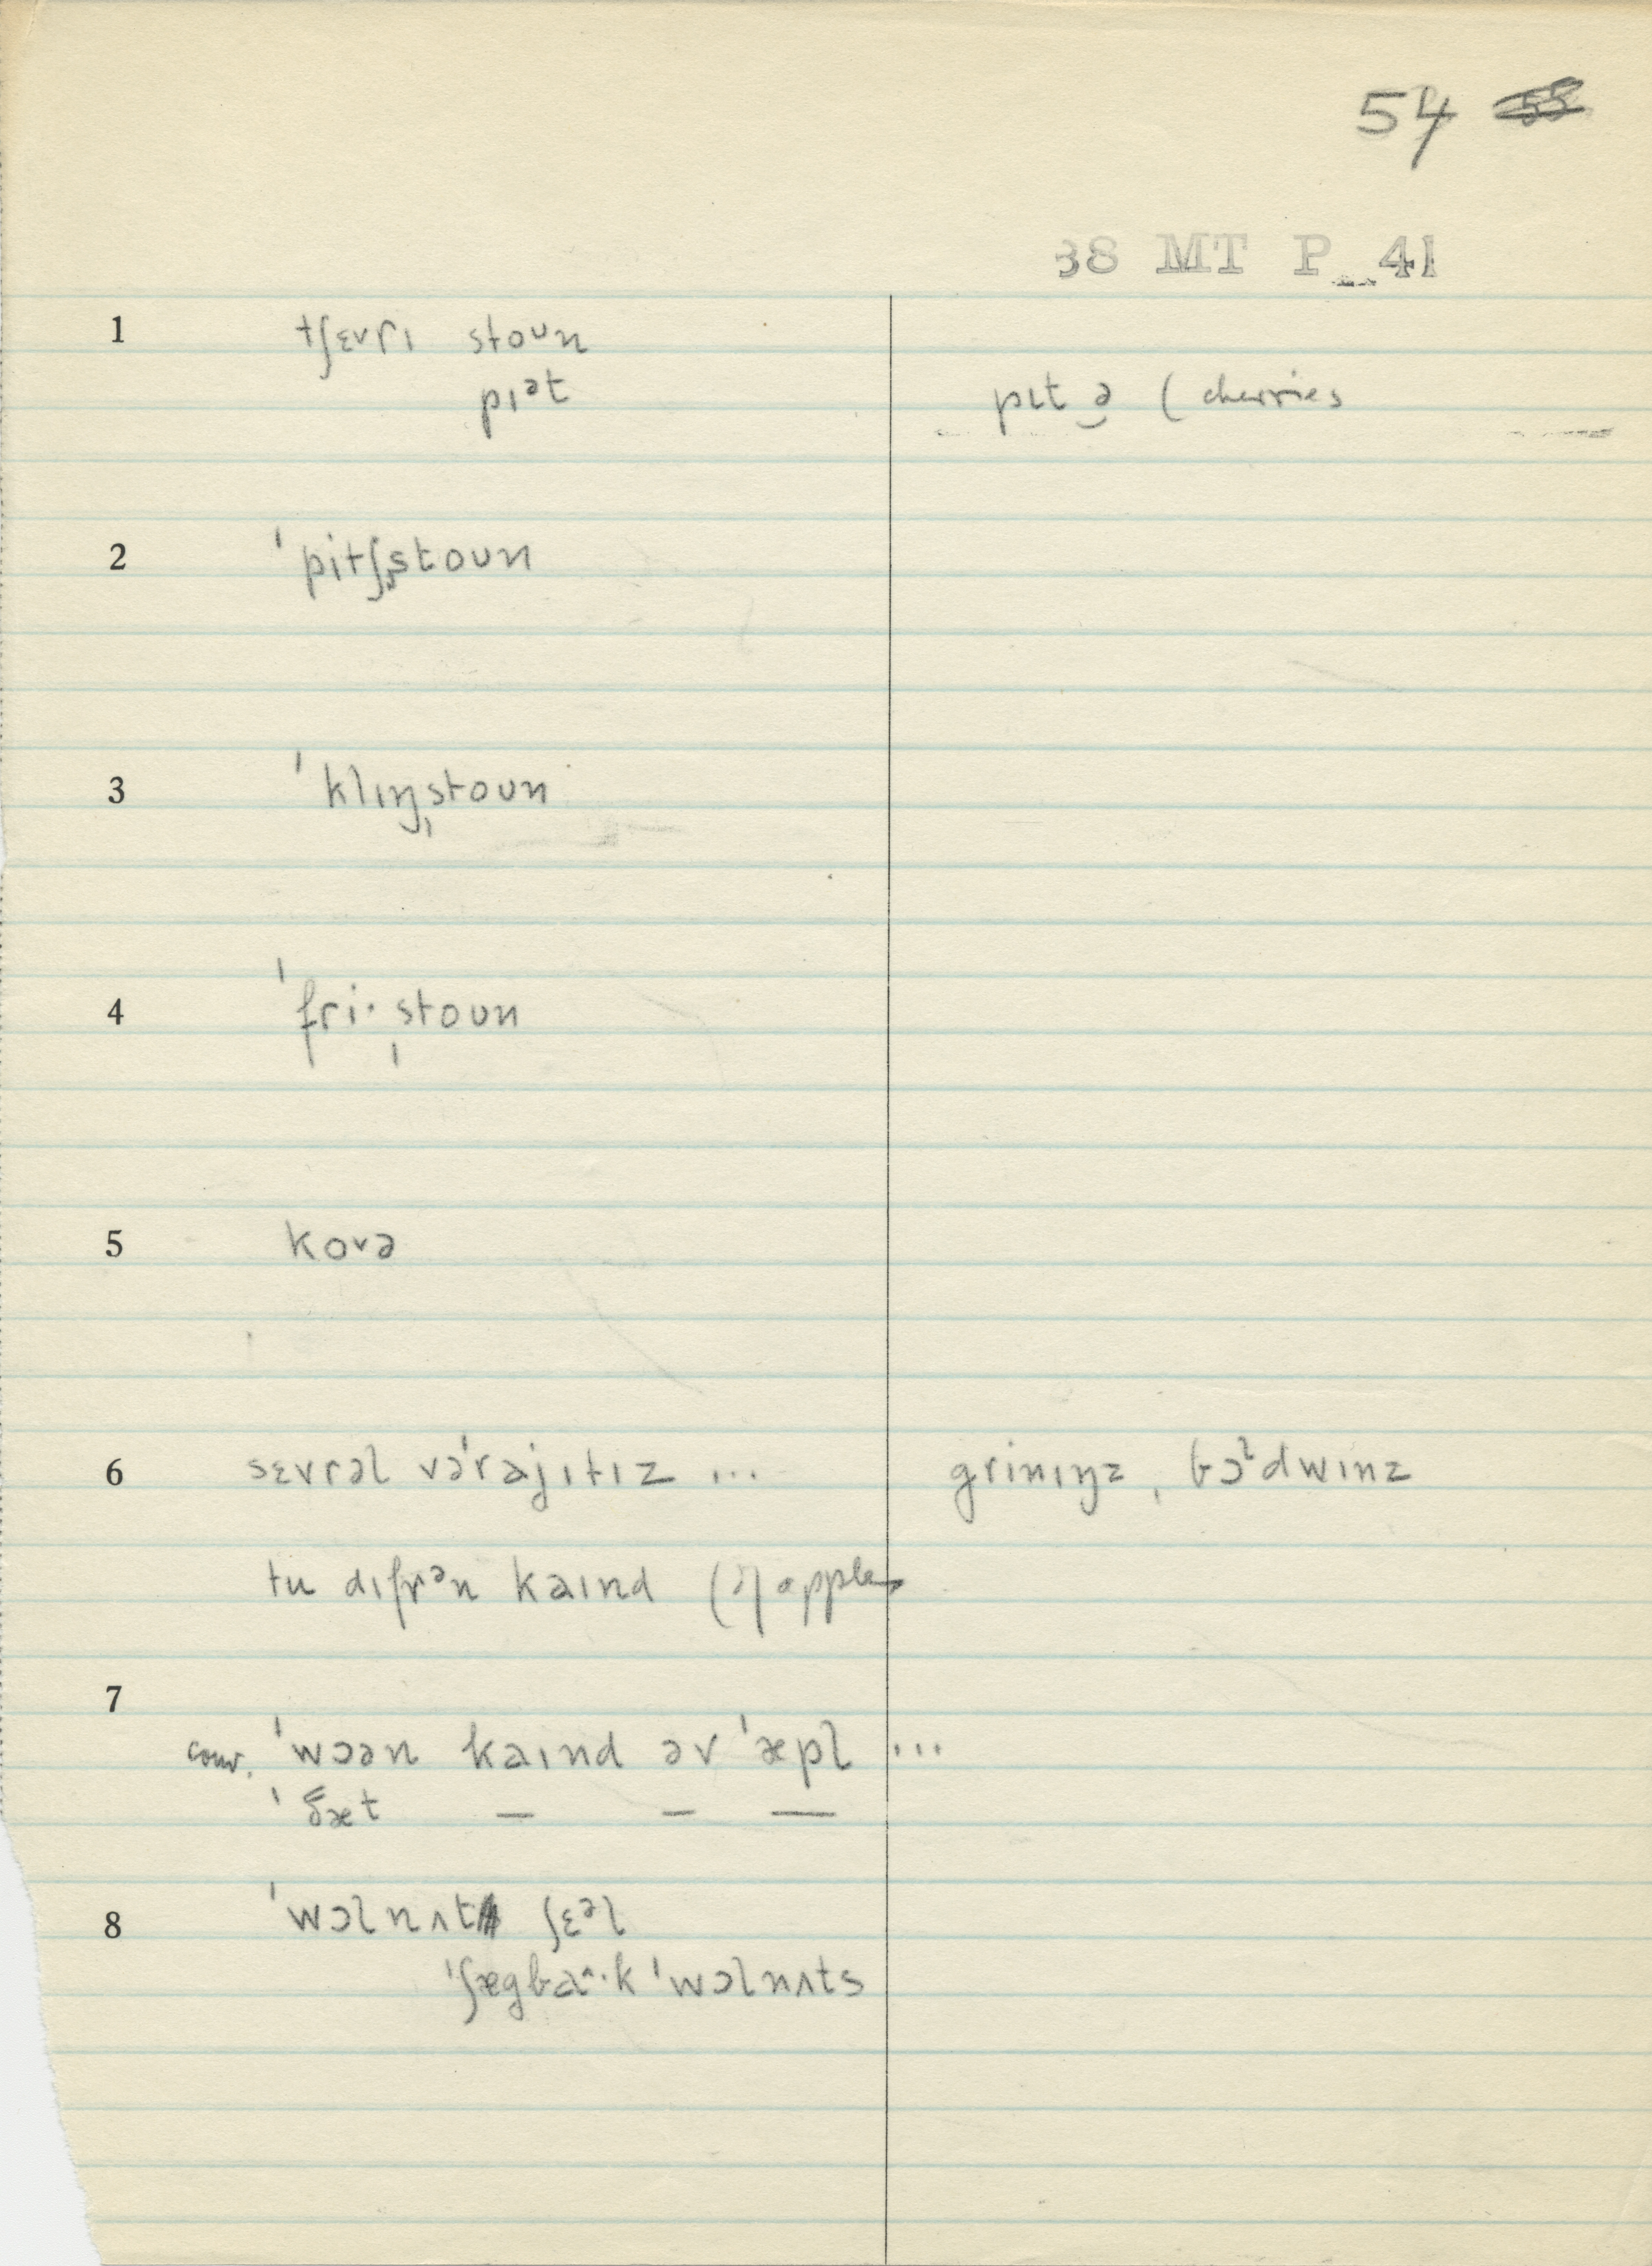 54 55
38 MT P 41
1 tʃɛvrɪ stoʊn
pɪᵊt pɪt ə̮ (cherries
2 ˈpitʃˌstoʊn
3 ˈklɪŋˌstoʊn
4 ˈfri·ˌstoʊn
5 kovə
6 sɛvrəl vəˈrajɪtɪz ... grinɪŋz, bɔˡdwɪnz
tu dɪfrᵊn kaɪnd (of apples
7
conv. ˈwɔən kaɪnd əv ˈæpl ...
ˈðæt — — —
8 ˈwɔlnʌt ʃɛᵊl
ˈʃægbaˆ·k ˈwɔlnʌts